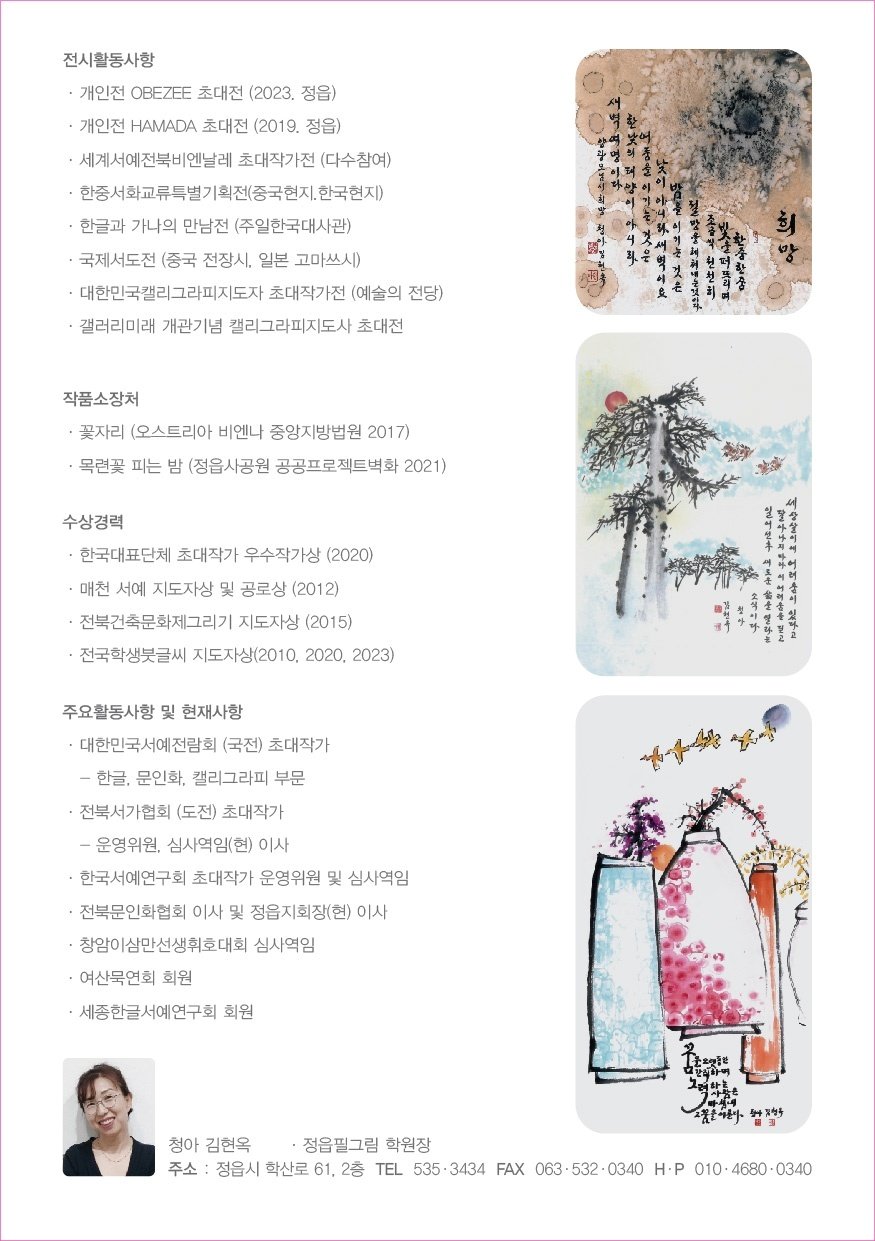 전시활동사항
· 개인전 OBEZEE 초대전 (2023. 정읍)
· 개인전 HAMADA 초대전 (2019. 정읍)
· 세계서예전북비엔날레 초대작가전 (다수참여)
· 한중서화교류특별기획전(중국현지.한국현지)
· 한글과 가나의 만남전 (주일한국대사관)
· 국제서도전 (중국 전장시, 일본 고마쓰시)
· 대한민국캘리그라피지도자 초대작가전 (예술의 전당)
· 갤러리미래 개관기념 캘리그라피지도사 초대전
작품소장처
· 꽃자리 (오스트리아 비엔나 중앙지방법원 2017)
· 목련꽃 피는 밤 (정읍사공원 공공프로젝트벽화 2021)
수상경력
· 한국대표단체 초대작가 우수작가상 (2020)
· 매천 서예 지도자상 및 공로상 (2012)
· 전북건축문화제그리기 지도자상 (2015)
· 전국학생붓글씨 지도자상(2010, 2020, 2023)
주요활동사항 및 현재사항
· 대한민국서예전람회 (국전) 초대작가
– 한글, 문인화, 캘리그라피 부문
· 전북서가협회 (도전) 초대작가
– 운영위원, 심사역임(현) 이사
· 한국서예연구회 초대작가 운영위원 및 심사역임
· 전북문인화협회 이사 및 정읍지회장(현) 이사
· 창암이삼만선생휘호대회 심사역임
· 여산묵연회 회원
· 세종한글서예연구회 회원
희망
한줌 한줌
빛을 퍼뜨리며
조금씩 천천히
절망을 헤쳐내는 것이다
밤을 이기는 것은
낮이 아니라 새벽이요
어둠을 이기는 것은
한낮의 태양이 아니라
새벽 여명이다
세상살이에 어려움이 있다고
달아나지 마라 이 어려움을 딛고
일어선 후 새로운 삶을 열라는
소식이다
청아
김현옥
꿈을 오랫동안
간직하며
노력하는
사람은
마침내
그 꿈을 이룬다.
청아 김현옥
청아 김현옥 · 정읍필그림 학원장
주소 : 정읍시 학산로 61, 2층 TEL 535·3434 FAX 063·532·0340 H·P 010·4680·0340